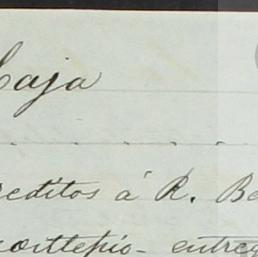 Caja
reditos á R. Be
montepio - entreg